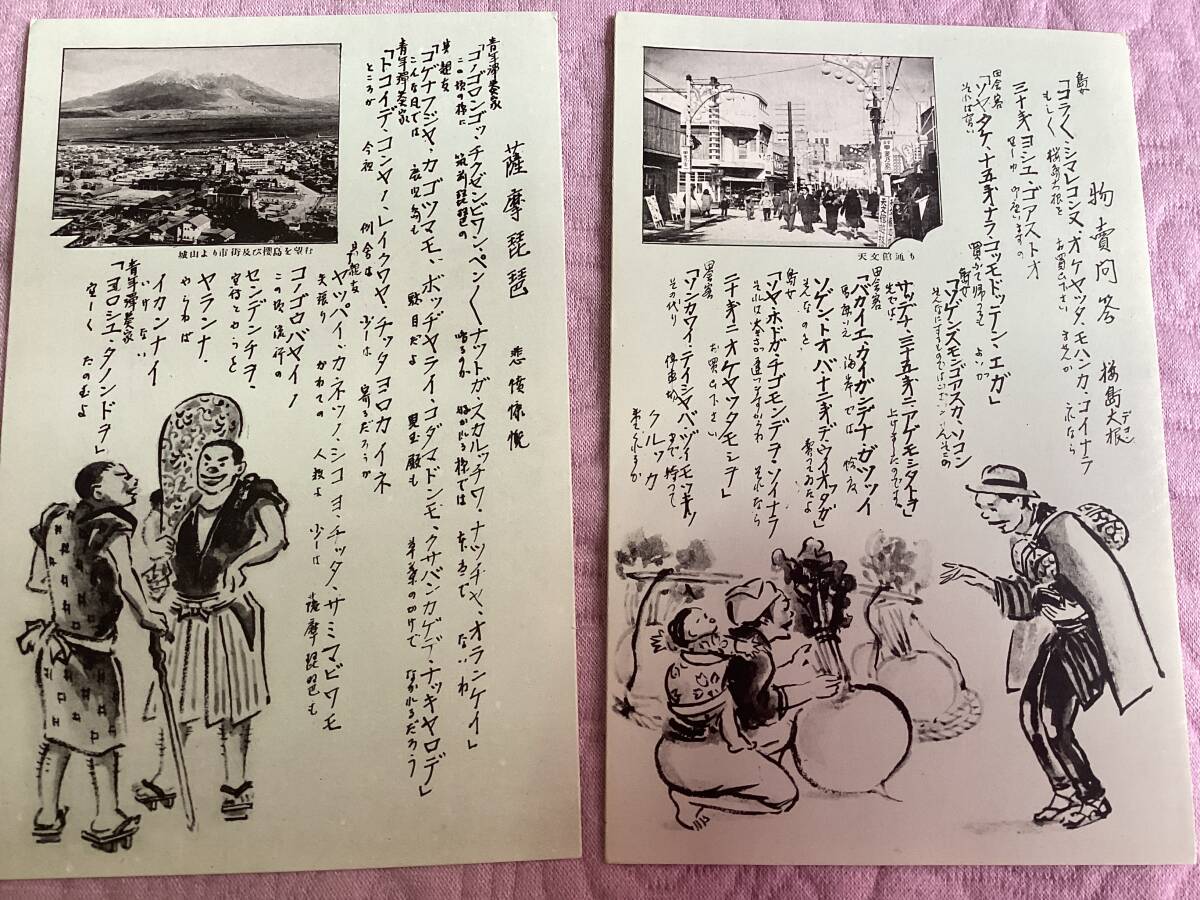 薩摩琵琶 悲憤慷慨
青年弾奏家
「コノゴロンゴッチクゼンビワン、ペン〳〵ナットガ、スカルッチワ、ナッチャ、オランケイ」
この頃の様に 筑前琵琶の 鳴るのが 好かれる様では なつちや ないわ
其親友
「ゴゲナフジャ、カゴッマモ、ボッヂヤライ、コダマドンモ、クサバンカゲデ、ナッキヤロデ」
こんな風では 鹿児島も 駄目だよ 児玉殿も 草葉のかげで なかれるだろう
青年弾奏家
「トコイデ、コンヤノ、レイクワヤ、チッタヨロカイネ
ところが 今夜 例会は 少しは 寄るだろうか
其親友
ヤッパイ、カネッノ、シコヨ、チッタ、サツマビワモ
矢張り かねての 人数よ 少しは 薩摩琵琶も
コノゴロバヤイノ
この頃流行の
センデンチヲ、
宣伝とやらを
ヤランナ、
やらねば
イカンナイ
いけない
青年弾奏家
「ヨロシュ、タノンドヲ」
宜しく たのむよ
城山より市街及び櫻島を望む
物売問答 桜島大根
デコン
島女
「コラ〳〵、シマレコンヌ、オケヤッタ、モハンカ、コイナラ
もし〳〵 桜島大根を お買ひ下さい ませんか これなら
三十銭ヨシュ、ゴアストオ
田舎客
「ソヤタケ、十五銭ナラ、コッモドッテン、エガ」
それは高い 買って帰っても よいが
島女
「ソゲンスモンゴアスカ、ソコン
そんなにするものではございません
サッデナ、三十五銭ニアゲモシタトオ」
先では 上げましたのです
田舎客
「バカイエ、カイガンデナ、ガッツイ
馬鹿いえ 海岸では 恰度
ソゲントオバナ、二十銭デ、ウイオッタガ」
そんなのを 売ってゐたよ
島女
「ソヤ、ホドガチゴモンデヲ、ソイナラ
それは 大きさが違ひますから それなら
二十銭ニ、オケヤッタモシヲ」
お買ひ下さい
田舎客
「ソンカワイ、テイシャバヅイ、モッキッ
その代り 停車場まで 持って
クルッカ
来てくれるか
天文館通り